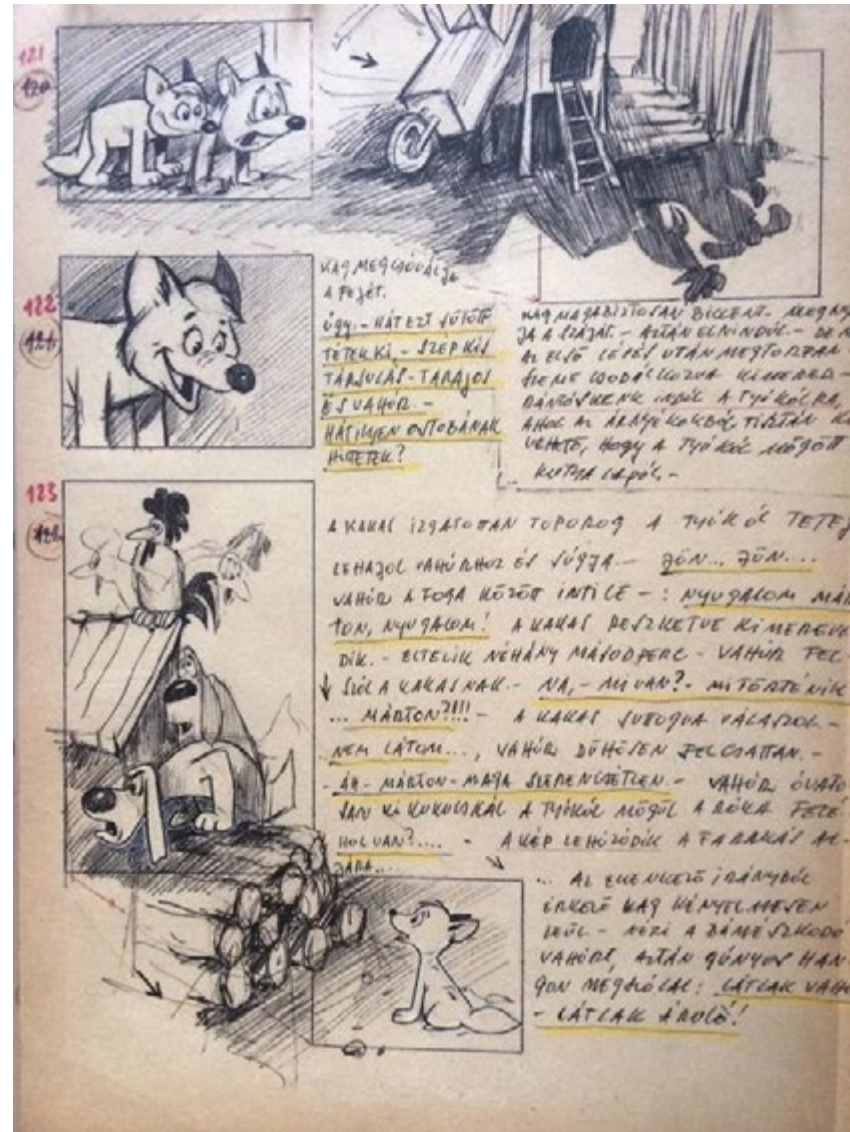 121
120
122
121
KAG MEGCSÓVÁLJA
A FEJÉT.
ÚGY. - HÁT EZT SÜTÖTT
TÉTEK KI, - SZÉP KIS
TÁRSULÁS - TARAJOS
ÉS VAHÚR. -
HÁT ILYEN OSTOBÁNAK
HITETEK?
KAG MAGABIZTOSAN BICCENT. - MEGNY
JA A SZÁJÁT. - AZTÁN ELINDUL. - DE
AZ ELSŐ LÉPÉS UTÁN MEGTORPAN
SZEME CSODÁLKOZVA KIMERED -
A TYÚKÓLRA,
AHOL AZ ÁRNYÉKOKBÓL TISZTÁN KI
VEHETŐ, HOGY A TYÚKÓL MÖGÖTT
KUTYA LAPUL. -
123
122
A KAKAS IZGATOTTAN TOPOROG A TYÚKÓL TETEJ
LEHAJOL VAHÚRHOZ ÉS SÚGJA. - JÖN... JÖN....
VAHÚR A FOGA KÖZÖTT INTI LE - : NYUGALOM MÁR
TON, NYUGALOM! A KAKAS RESZKETVE KIMEREVE
DIK. - ELTELIK NÉHÁNY MÁSODPERC - VAHÚR FEL
SZÓL A KAKASNAK. - NA, - MI VAN? - MI TÖRTÉNIK
... MÁRTON?!!! - A KAKAS SUTOGVA VÁLASZOL. -
NEM LÁTOM..., VAHÚR DÜHÖSEN FELCSATTAN. -
ÁH - MÁRTON - MAGA SZERENCSÉTLEN. - VAHÚR ÓVATO
SAN KI KUKUCSKÁL A TYÚKÓL MÖGÜL A RÓKA FELÉ
HOL VAN?.... - A KÉP LEHÚZÓDIK A FARAKÁS AL-
JÁRA....
... AZ ELLENKEZŐ IRÁNYBÓL
ÉRKEZŐ KAG KÉNYELMESEN
LEÜL - NÉZI A BÁMÉSZKODÓ
VAHÚRT, AZTÁN GÚNYOS HAN-
GON MEGSZÓLAL: LÁTLAK VAHU
- LÁTLAK ÁRULÓ!